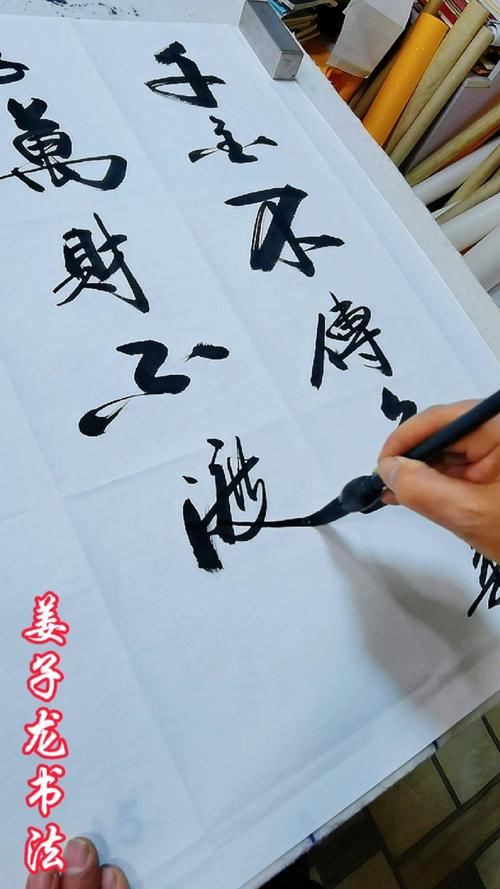 千金不傳
萬財不渡
姜子龙书法